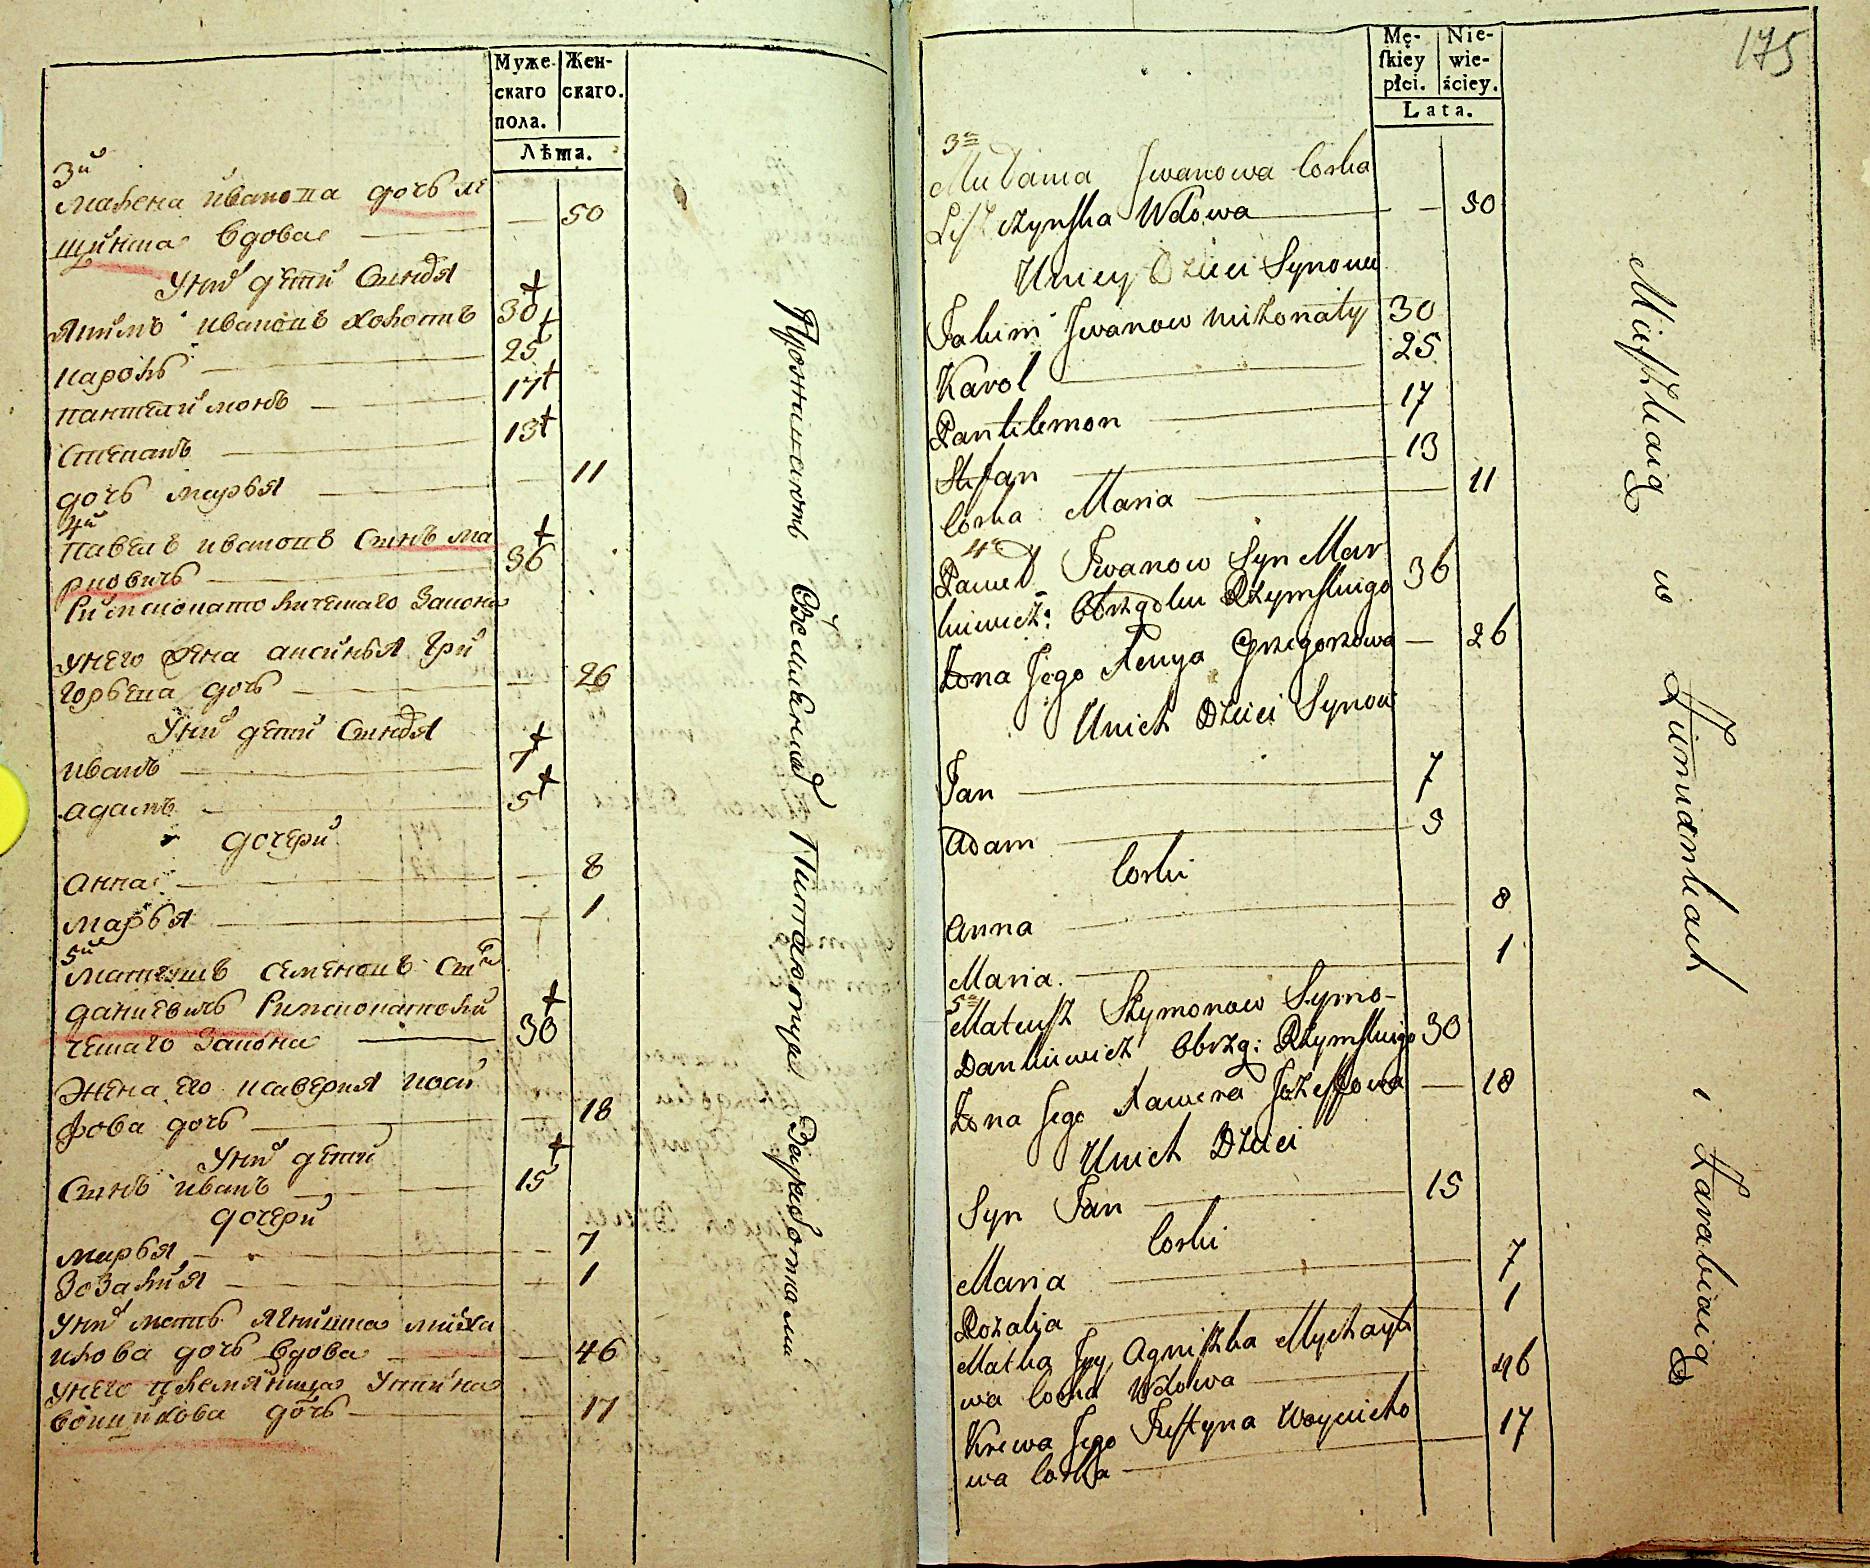 Муже-
скаго
пола.
Жен-
скаго.
Лѣта.
3й
Малена иванова дочъ ле
щинска вдова — 50
Унй дети Синовя
Якимъ ивановъ холостъ 30
кароль 25
пантелимонъ 17
Степанъ 13
дочъ марья 11
4й
павелъ ивановъ Синъ ма
рковичъ 36
Римскокатоличекаго Закона
Унего жена аксинья Гри
горьева дочъ 26
Унй дети Синовя
иванъ 7
адамъ 5
дочери
анна 8
марья 1
5й
матеушъ семеновъ Си
даниевичъ Римскокатоли
чекаго Закона 30
Жена его ксаверия иоси
фова дочъ 18
Унй дети
Синъ иванъ 15
дочери
марья 7
Розалия 1
Унй матъ Агнишка миха
илова дочъ вдова 46
Унего племяница Устина
войцихова дочъ 17
Проживаютъ въ Питаютця Заработками
175
Mę-
skiey
płci.
Nie-
wie-
ściey.
Lata.
3ci
Iwanowa Corka
Leszczynska Wdowa 50
Uniey Dzieci Synowie
Jakim Iwanow niżonaty 30
Karol 25
Pantilemon 17
Stefan 13
Corka Maria 11
4
Paweł Iwanow Syn Mar
kiewicz: Obrządku Rzymskiego 36
Żona Jego Xenya Grzegorzowa — 26
Unich Dzieci Synow
Jan 7
Adam 5
Corki
Anna 8
Maria 1
5
Mateusz Szymonow Symo-
Dankiewicz Obrzą: Rzymskiego 30
Żona Jego Xawera Jozeffowa — 18
Unich Dzieci
Syn Jan 15
Corki
Maria 7
Rozalia 1
Matka Jey Agniszka Mychayło
wa Corka Wdowa 46
Krewa Jego Justyna Woyciecho
wa Corka 17
Mieszkaią w i Zarabiaią